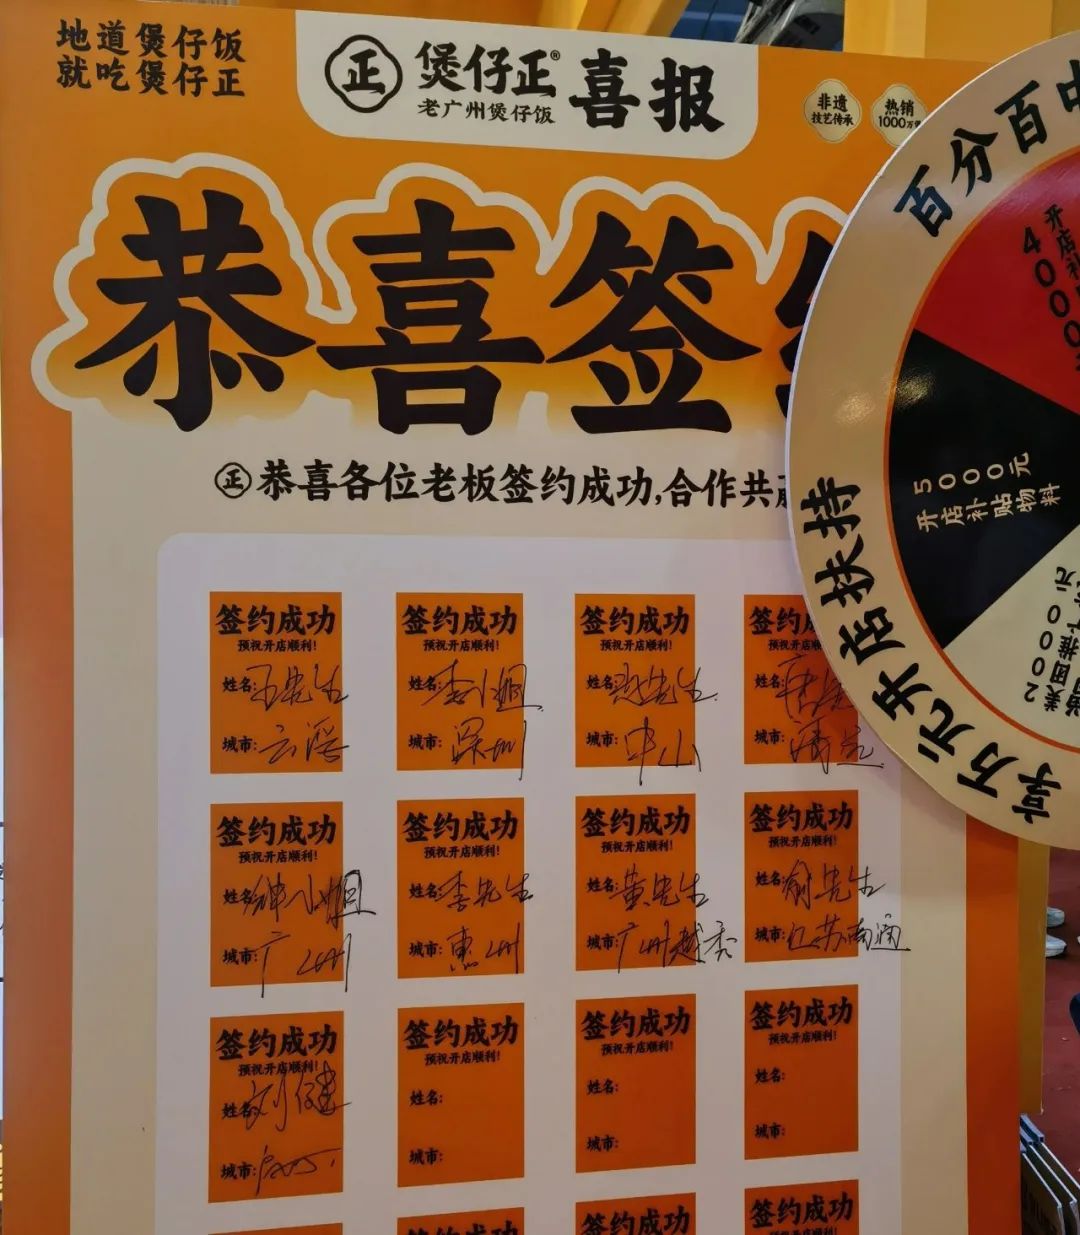 地道煲仔饭
就吃煲仔正
正 煲仔正® 喜报
老广州煲仔饭
非遗
技艺传承
热销
恭喜签
正 恭喜各位老板签约成功,合作共
百分百中
享万元开店扶持
5000元
开店补贴物料
签约成功
预祝开店顺利!
姓名:王先生
城市:云浮
签约成功
预祝开店顺利!
姓名:李小姐
城市:深圳
签约成功
预祝开店顺利!
姓名:先生
城市:中山
签约
姓名:
城市:
签约成功
预祝开店顺利!
姓名:钟小姐
城市:广州
签约成功
预祝开店顺利!
姓名:李先生
城市:惠州
签约成功
预祝开店顺利!
姓名:黄先生
城市:广州越秀
签约成功
预祝开店顺利!
姓名:俞先生
城市:江苏南通
签约成功
预祝开店顺利!
姓名:刘健
城市:
签约成功
预祝开店顺利!
姓名:
城市:
签约成功
预祝开店顺利!
姓名:
城市:
签约成功
预祝开店顺利!
姓名:
城市:
签约成功
签约成功
签约成功